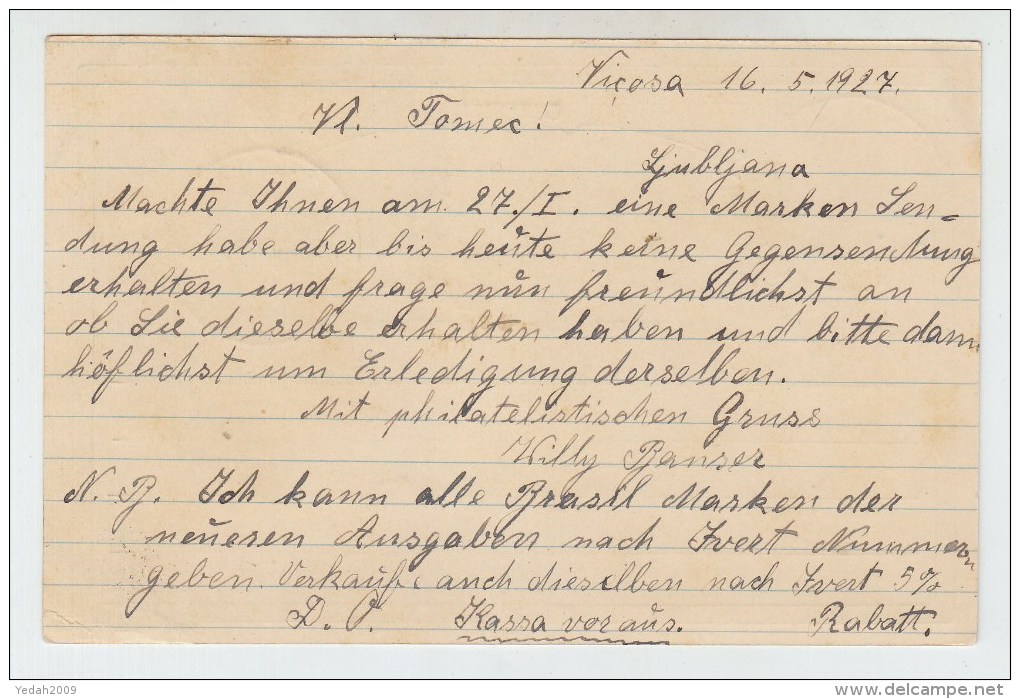 Viçosa 16. 5. 1927.
Vl. Tomec!
Ljubljana
Machte Ihnen am 27./I. eine Marken Sen=
dung habe aber bis heute keine Gegensendung
erhalten und frage nun freundlichst an
ob Sie dieselbe erhalten haben und bitte dann
höflichst um Erledigung derselben.
Mit philatelistischen Gruss
Willy Banser
N. B. Ich kann alle Brasil Marken der
neueren Ausgaben nach Ivert Nummern
geben. Verkaufe auch dieselben nach Ivert 5%
D. O. Kassa voraus. Rabatt.
Yedah2009
delcampe.net